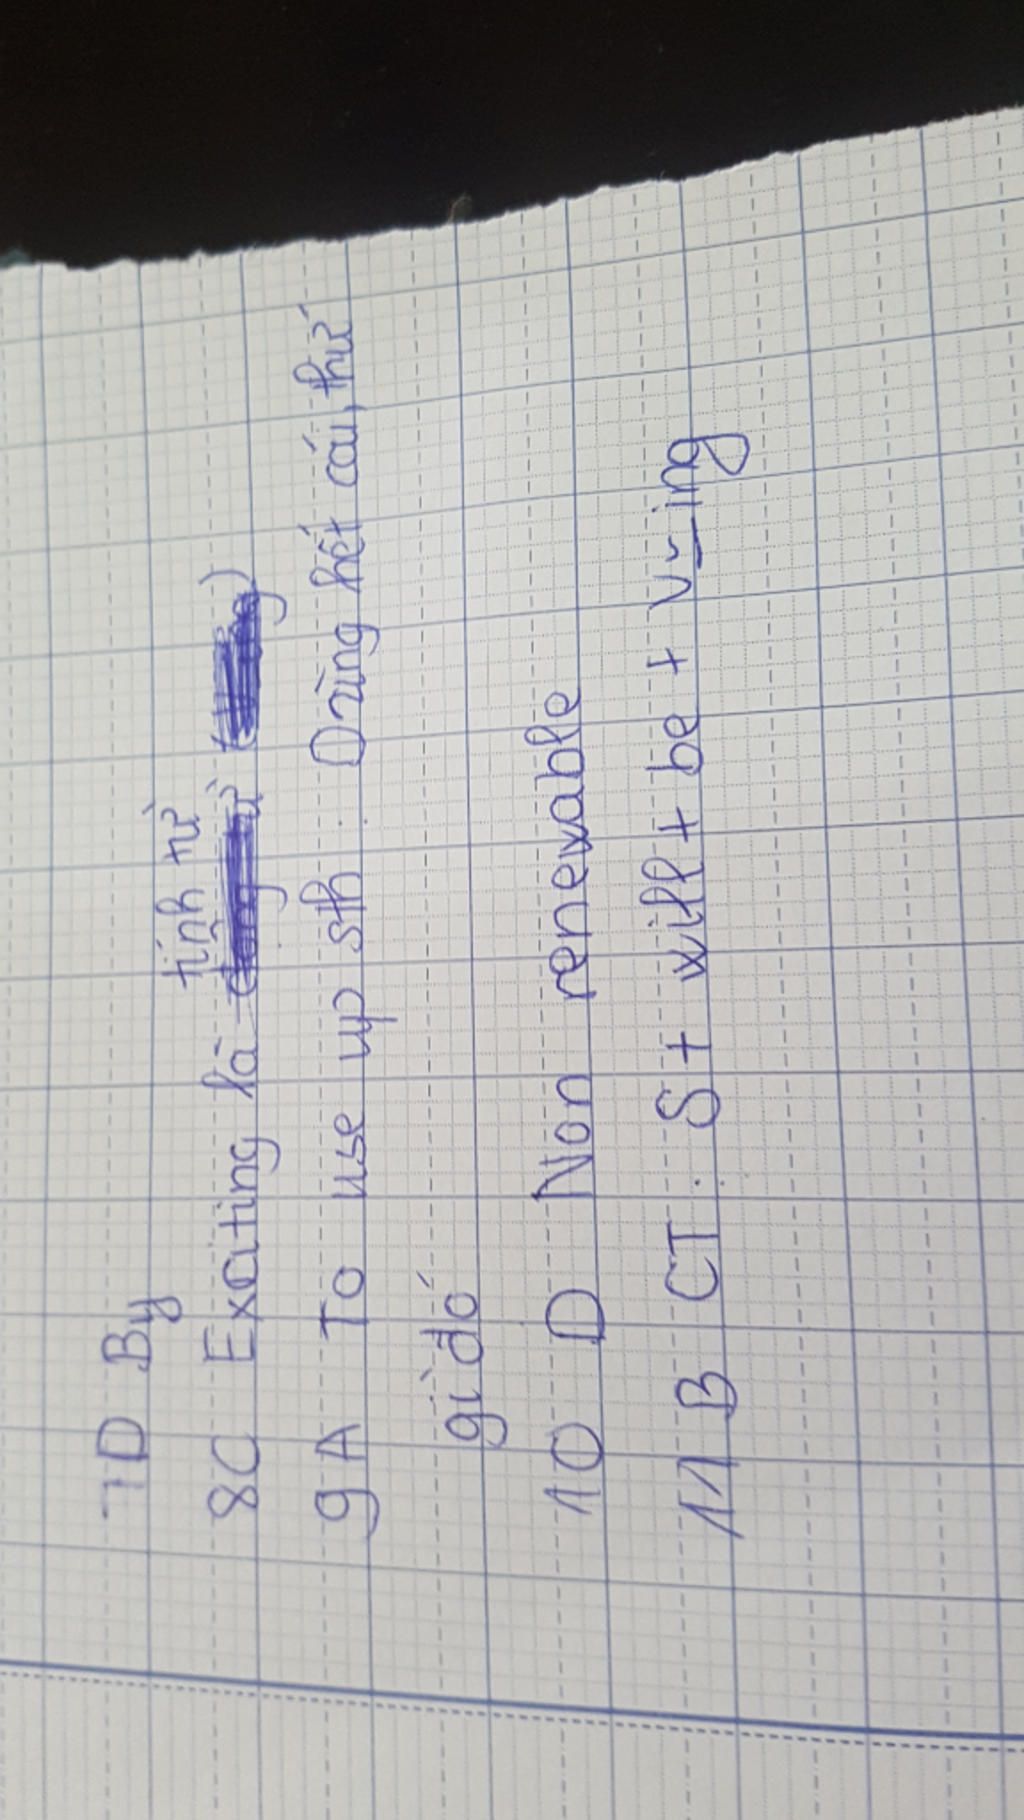 7D By
tính từ
8C Exciting là
9A To use up sth : Dùng hết cái, thứ
gì đó
10 D Non renewable
11 B CT : S + will + be + V_ing